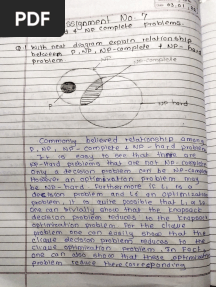 PDF
Assignment No 7
NP complete problems.
Q.1 With neat diagram explain relationship
between P, NP, NP-complete & NP-Hard
problem
NP-complete
P
NP hard
Commonly believed relationship among
P, NP, NP-complete & NP-hard problems
It is easy to see that there are
NP-hard problems that are not NP-complete
Only a decision problem can be NP-complete
However an optimization problem may
be NP-hard. Furthermore if L1 is a
decision problem and L2 an optimization
problem, it is quite possible that L1 α L2
one can trivially show that the knapsack
decision problem reduces to the knapsack
optimization problem. For the clique
problem one can easily show that the
clique decision problem reduces to the
clique optimization problem. In fact,
one can also show that these optimization
problem reduce there corresponding